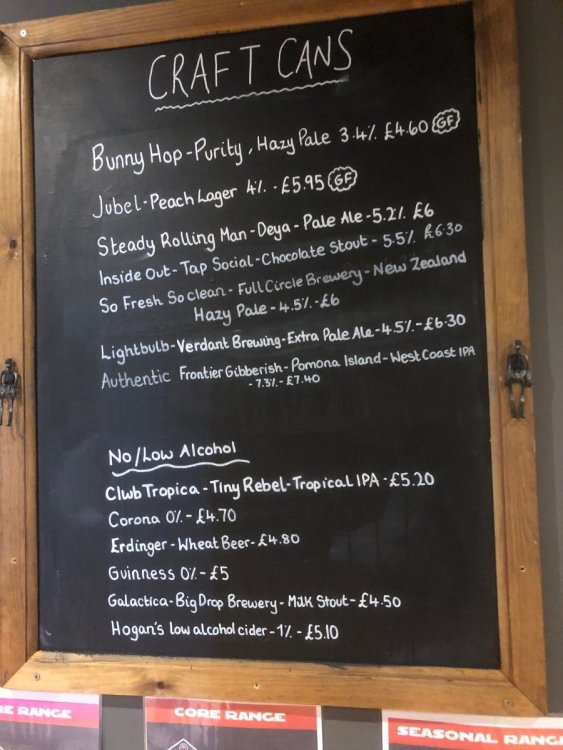 CRAFT CANS
Bunny Hop - Purity, Hazy Pale 3.4% £4.60 GF
Jubel - Peach Lager 4% - £5.95 GF
Steady Rolling Man - Deya - Pale Ale - 5.2% £6
Inside Out - Tap Social - Chocolate Stout - 5.5% £6.30
So Fresh So clean - Full Circle Brewery - New Zealand
Hazy Pale - 4.5% - £6
Lightbulb - Verdant Brewing - Extra Pale Ale - 4.5% - £6.30
Authentic Frontier Gibberish - Pomona Island - West Coast IPA
- 7.3% - £7.40
No/Low Alcohol
Club Tropica - Tiny Rebel - Tropical IPA - £5.20
Corona 0% - £4.70
Erdinger - Wheat Beer - £4.80
Guinness 0% - £5
Galactica - Big Drop Brewery - Milk Stout - £4.50
Hogan's low alcohol cider - 1% - £5.10
RE RANGE
CORE RANGE
SEASONAL RANG